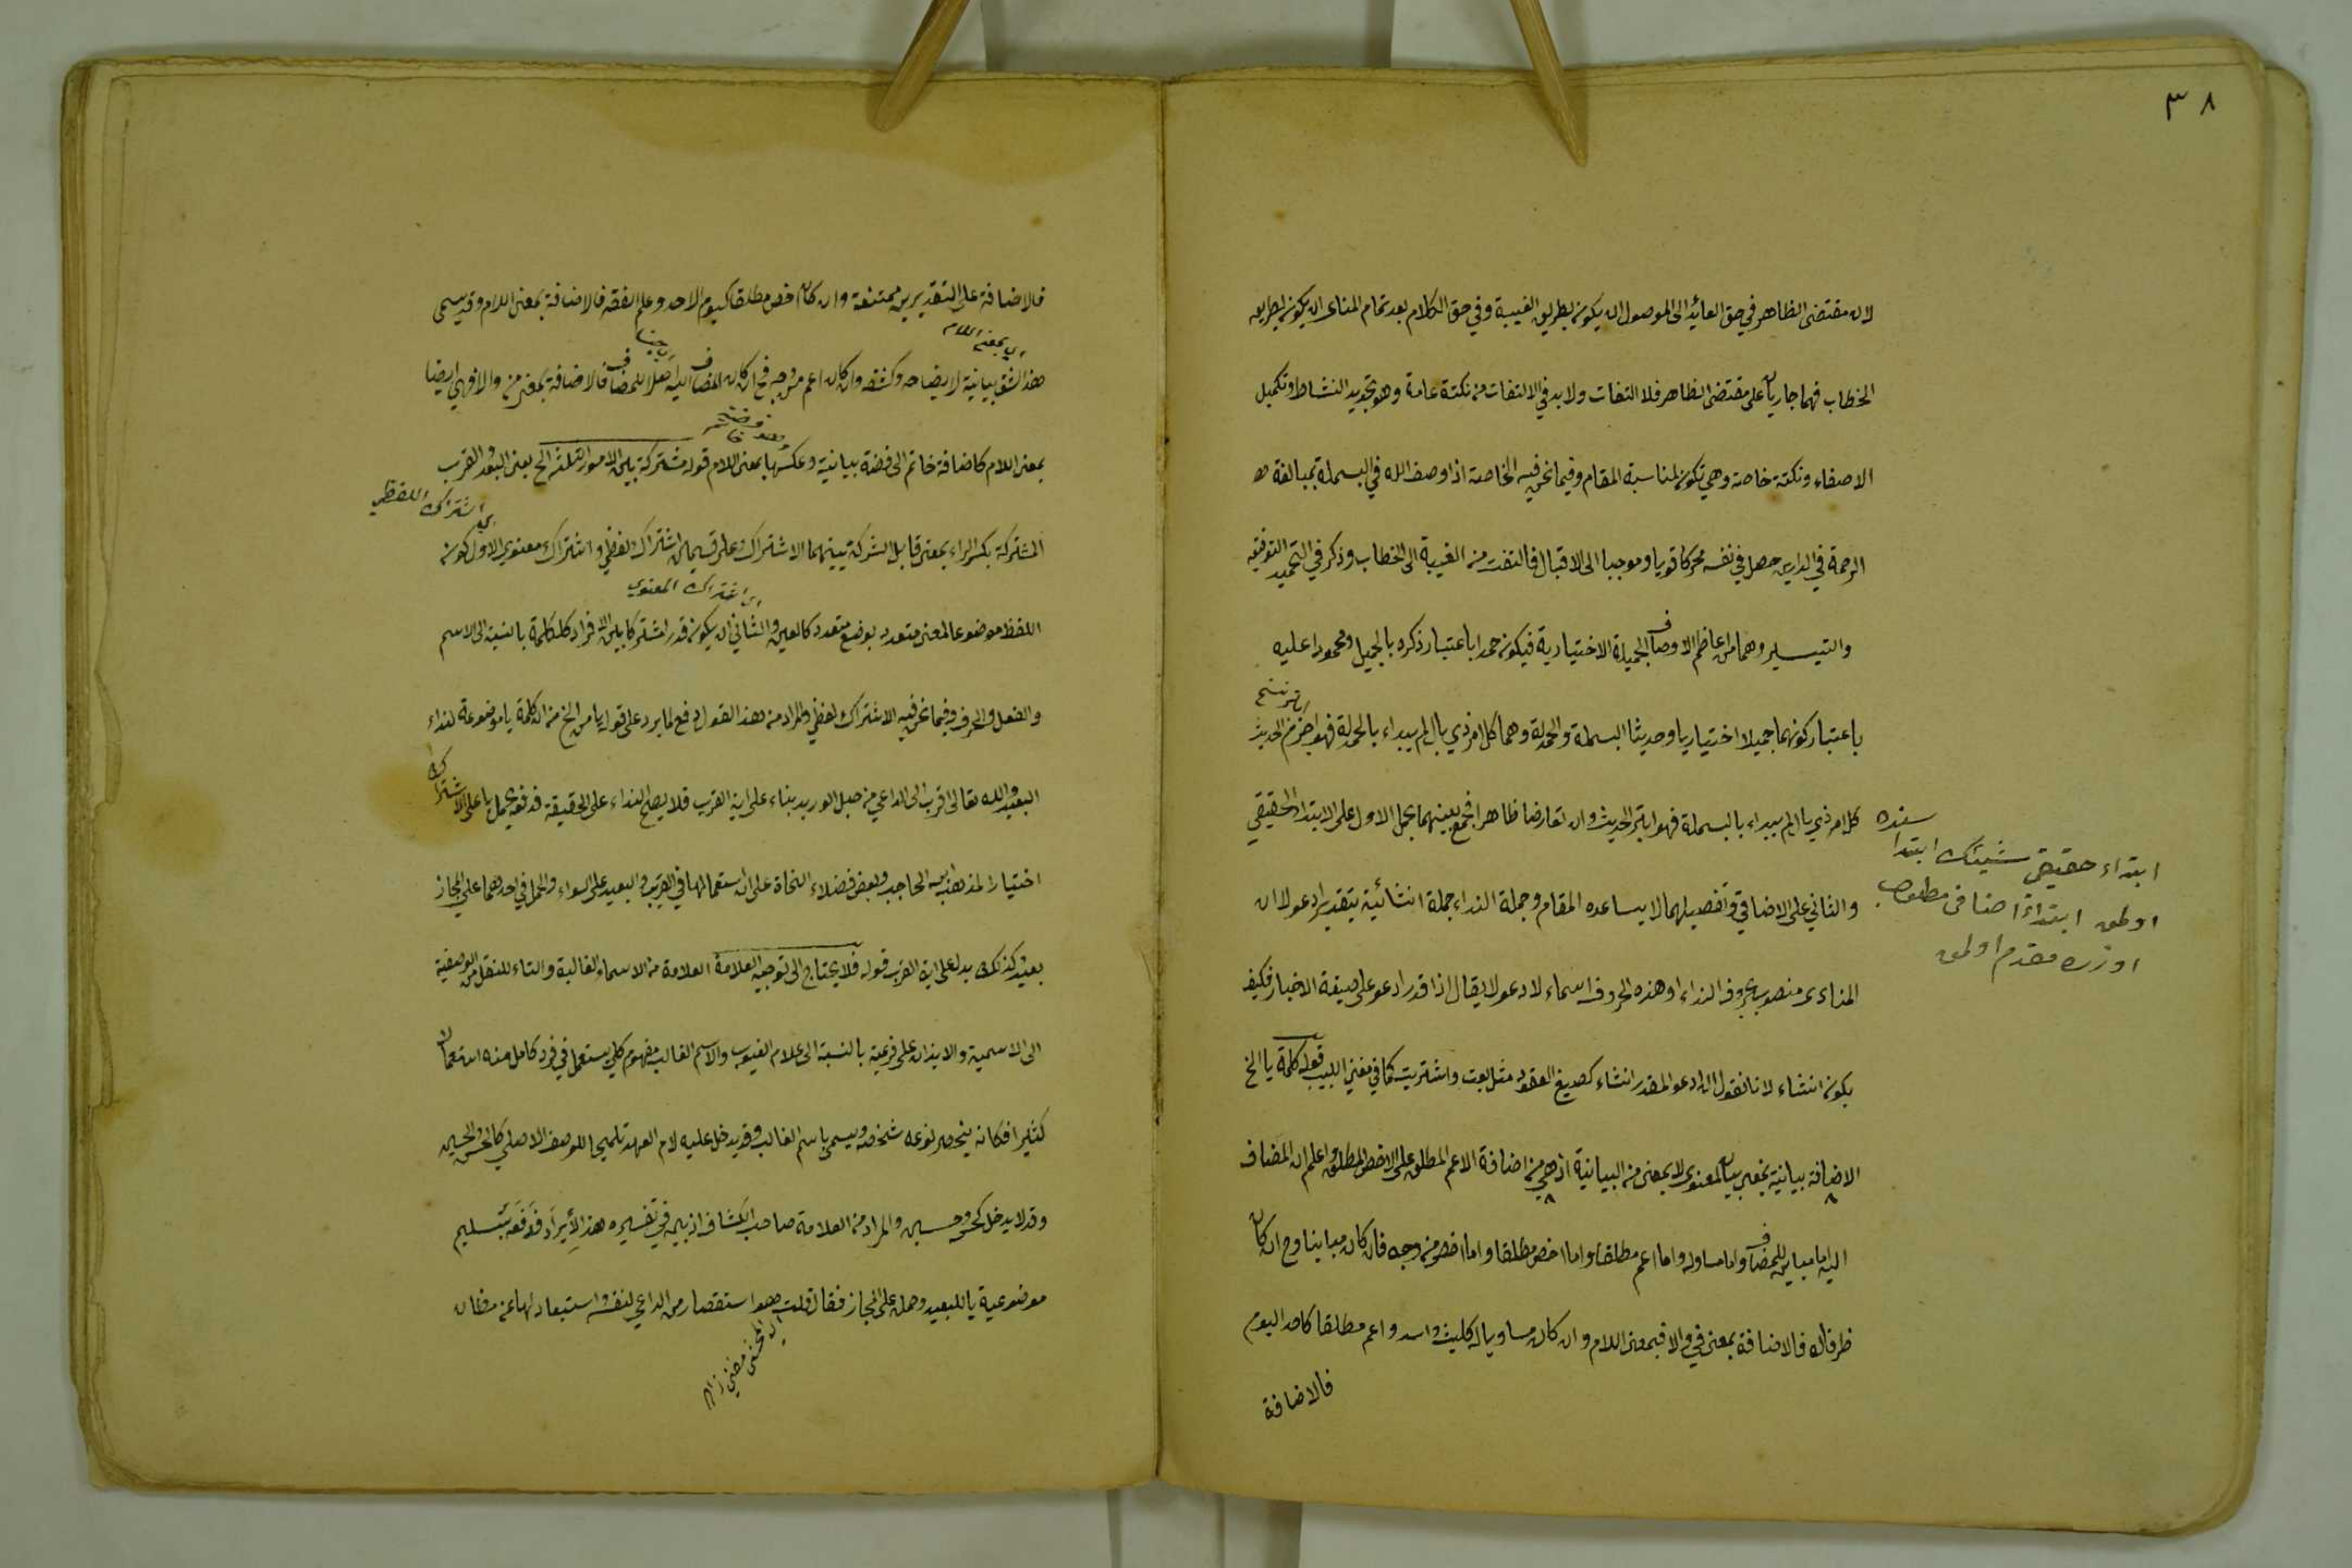 ٣٨
لان مقتضى الظاهر في حق العائد الى الموصول ان يكون بطريق الغيبة وفي حق الكلام بعد تمام المنادى ان يكون بطريق
الخطاب فهما جاريان على مقتضى الظاهر فلا التفات ولا بد في الالتفات من نكتة عامة وهو تجديد النشاط وتكميل
الاصغاء ونكتة خاصة وهي تكون لمناسبة المقام وفيما نحن فيه الخاصة اذا وصف الله في البسملة بمبالغة
الرحمة في الدارين حصل في نفسه محركا قويا وموجبا الى الاقبال فالتفت من الغيبة الى الخطاب وذكر في التحميد التوفيق
والتيسير وهما من اعاظم الاوصاف الجميلة الاختيارية فيكون حمدا باعتبار ذكره بالجميل ومحمودا عليه
باعتبار كونهما جميلا اختياريا وحديثا البسملة والحمدلة وهما كل امر ذي بال لم يبداء بالحمدلة فهو اجزم الحديث
كل امر ذي بال لم يبداء بالبسملة فهو ابتر الحديث وان تعارضا ظاهرا فجمع بينهما بحمل الاول على الابتداء الحقيقي
والثاني على الاضافي وتفصيلهما لا يساعده المقام وجملة النداء جملة انشائية بتقدير ادعو لا ان
المنادى منصوب بحروف النداء او هذه الحروف اسماء لادعو لا يقال اذا قدر ادعو على صيغة الاخبار فكيف
يكون انشاء لانا نقول ان ادعو المقدر انشاء كصيغ العقود مثل بعت واشتريت كما في مغني اللبيب قوله كلمة يا الخ
الاضافة بيانية بمعنى بيان المعنوي لا بمعنى من البيانية اذ هي من اضافة الاعم المطلق على الاخص المطلق اعلم ان المضاف
اليه اما مباين للمضاف واما مساو له واما اعم مطلقا واما اخص مطلقا واما اخص من وجه فان كان مباينا وح ان كان
ظرفا له فالاضافة بمعنى في والا فبمعنى اللام وان كان مساويا له كليث واسد واعم مطلقا كاحد اليوم
فالاضافة
ابتداء حقيقى شيئك ابتدا
اولمق ابتداء اضافى مطلوب
اوزره مقدم اولمق
فالاضافة على التقديرين ممتنعة وان كان اخص مطلقا كيوم الاحد وعلم الفقه فالاضافة بمعنى اللام وقد يسمى
اي بمعنى اللام
هذا الشق بيانية لايضاحه وكشفه وان كان اعم من وجه فح ان كان المضاف اليه اصلا للمضاف فالاضافة بمعنى من والا فهي ايضا
بمعنى اللام كاضافة خاتم الى فضة بيانية وعكسها بمعنى اللام قوله مشتركة بين الامور الثلثة الخ يعنى البعد والقرب
اي اشتراك اللفظي
المشتركة بكسر الراء بمعنى قابل الشركة بينهما الاشتراك على قسمين اشتراك لفظي واشتراك معنوي الاول كون
اي اشتراك المعنوي
اللفظ موضوعا لمعنى متعدد بوضع متعدد كالعين والثاني ان يكون قدرا مشتركا بين الافراد كالكلمة بالنسبة الى الاسم
والفعل والحرف وفيما نحن فيه الاشتراك لفظي والمراد من هذا القول دفع لما يرد على قوله يا من الخ من ان كلمة يا موضوعة لنداء
البعيد والله تعالى اقرب الى الداعي من حبل الوريد بناء على اية القرب فلا يصح النداء على الحقيقة فدفعه بحمل يا على الاشتراك
اختيارا لمذهب ابن الحاجب وبعض فضلاء النحاة على ان استعمالها في القريب والبعيد على السواء والحمل في احدهما على المجاز
بعيد كذلك يدل على اية القرب قوله فلا يحتاج الى توجيه العلامة العلامة من الاسماء الغالبة والتاء للنقل من الوصفية
الى الاسمية والايذان على فرعية بالنسبة الى علام الغيوب والاسم الغالب مفهوم كلي يستعمل في فرد كامل منه استعمالا
كثيرا فكانه ينحصر نوعه شخصه ويسمى باسم الغالب وقد يدخل عليه لام العهد تلميحا للوصف الاصلي كالحسن والحسين
وقد لا يدخل كحسن وحسين والمراد من العلامة صاحب الكشاف اذ بين في تفسيره هذا الايراد فدفعه بتسليم
موضوعية يا للبعيد وحمله على المجاز فقال قلت هو استقصار من الداعي لنفسه واستبعاد لها عن مظان